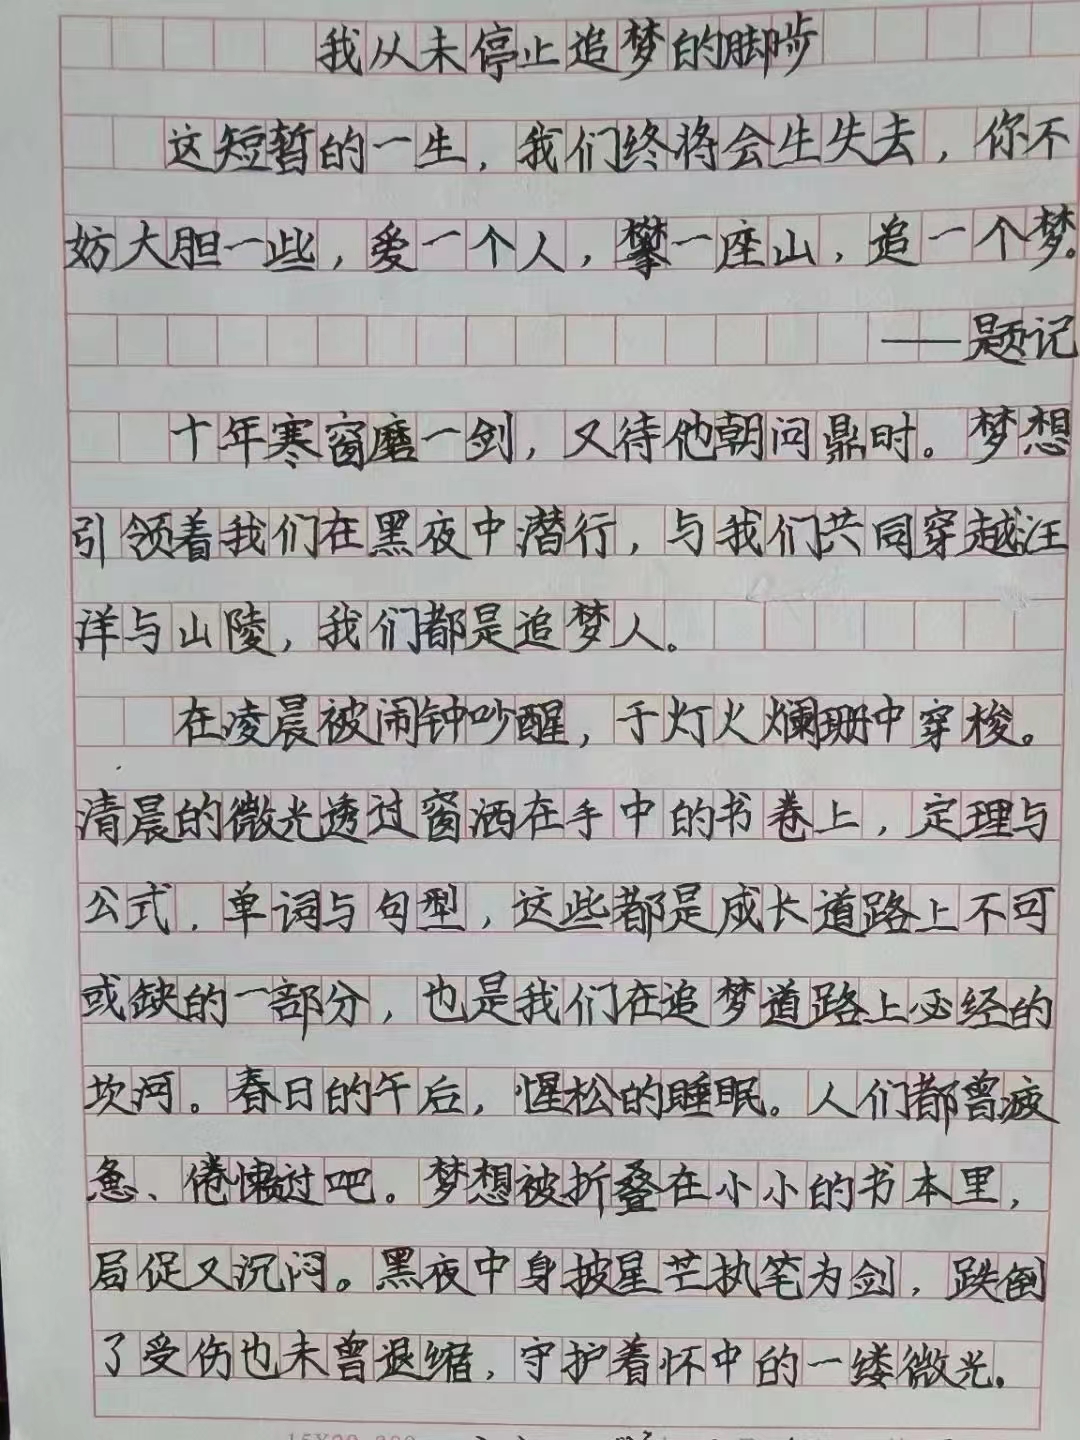 我从未停止追梦的脚步
这短暂的一生，我们终将会生失去，你不
妨大胆一些，爱一个人，攀一座山，追一个梦。
——题记
十年寒窗磨一剑，又待他朝问鼎时。梦想
引领着我们在黑夜中潜行，与我们共同穿越汪
洋与山陵，我们都是追梦人。
在凌晨被闹钟吵醒，于灯火斓珊中穿梭。
清晨的微光透过窗洒在手中的书卷上，定理与
公式，单词与句型，这些都是成长道路上不可
或缺的一部分，也是我们在追梦道路上必经的
坎河。春日的午后，惺松的睡眠。人们都曾疲
惫、倦懒过吧。梦想被折叠在小小的书本里，
局促又沉闷。黑夜中身披星芒执笔为剑，跌倒
了受伤也未曾退缩，守护着怀中的一缕微光。